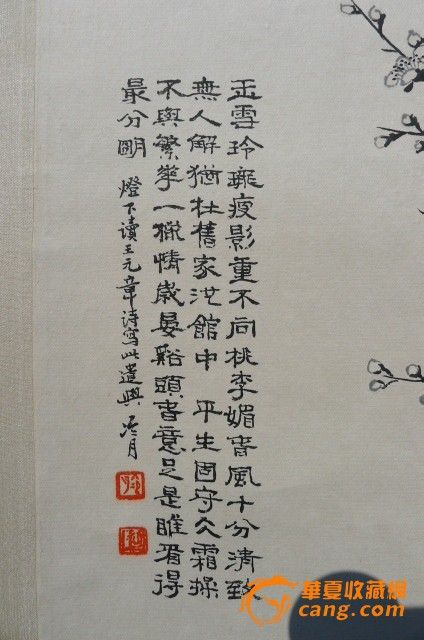 玉雪玲瓏疎影重不同桃李媚春風十分清致
無人解猶在舊家池館中 平生固守仌霜操
不與繁華一樣情歲晏谿頭春意足是誰看得
最分朙 燈下讀王元章詩寫此遣興 冷月
華夏收藏網
cang.com